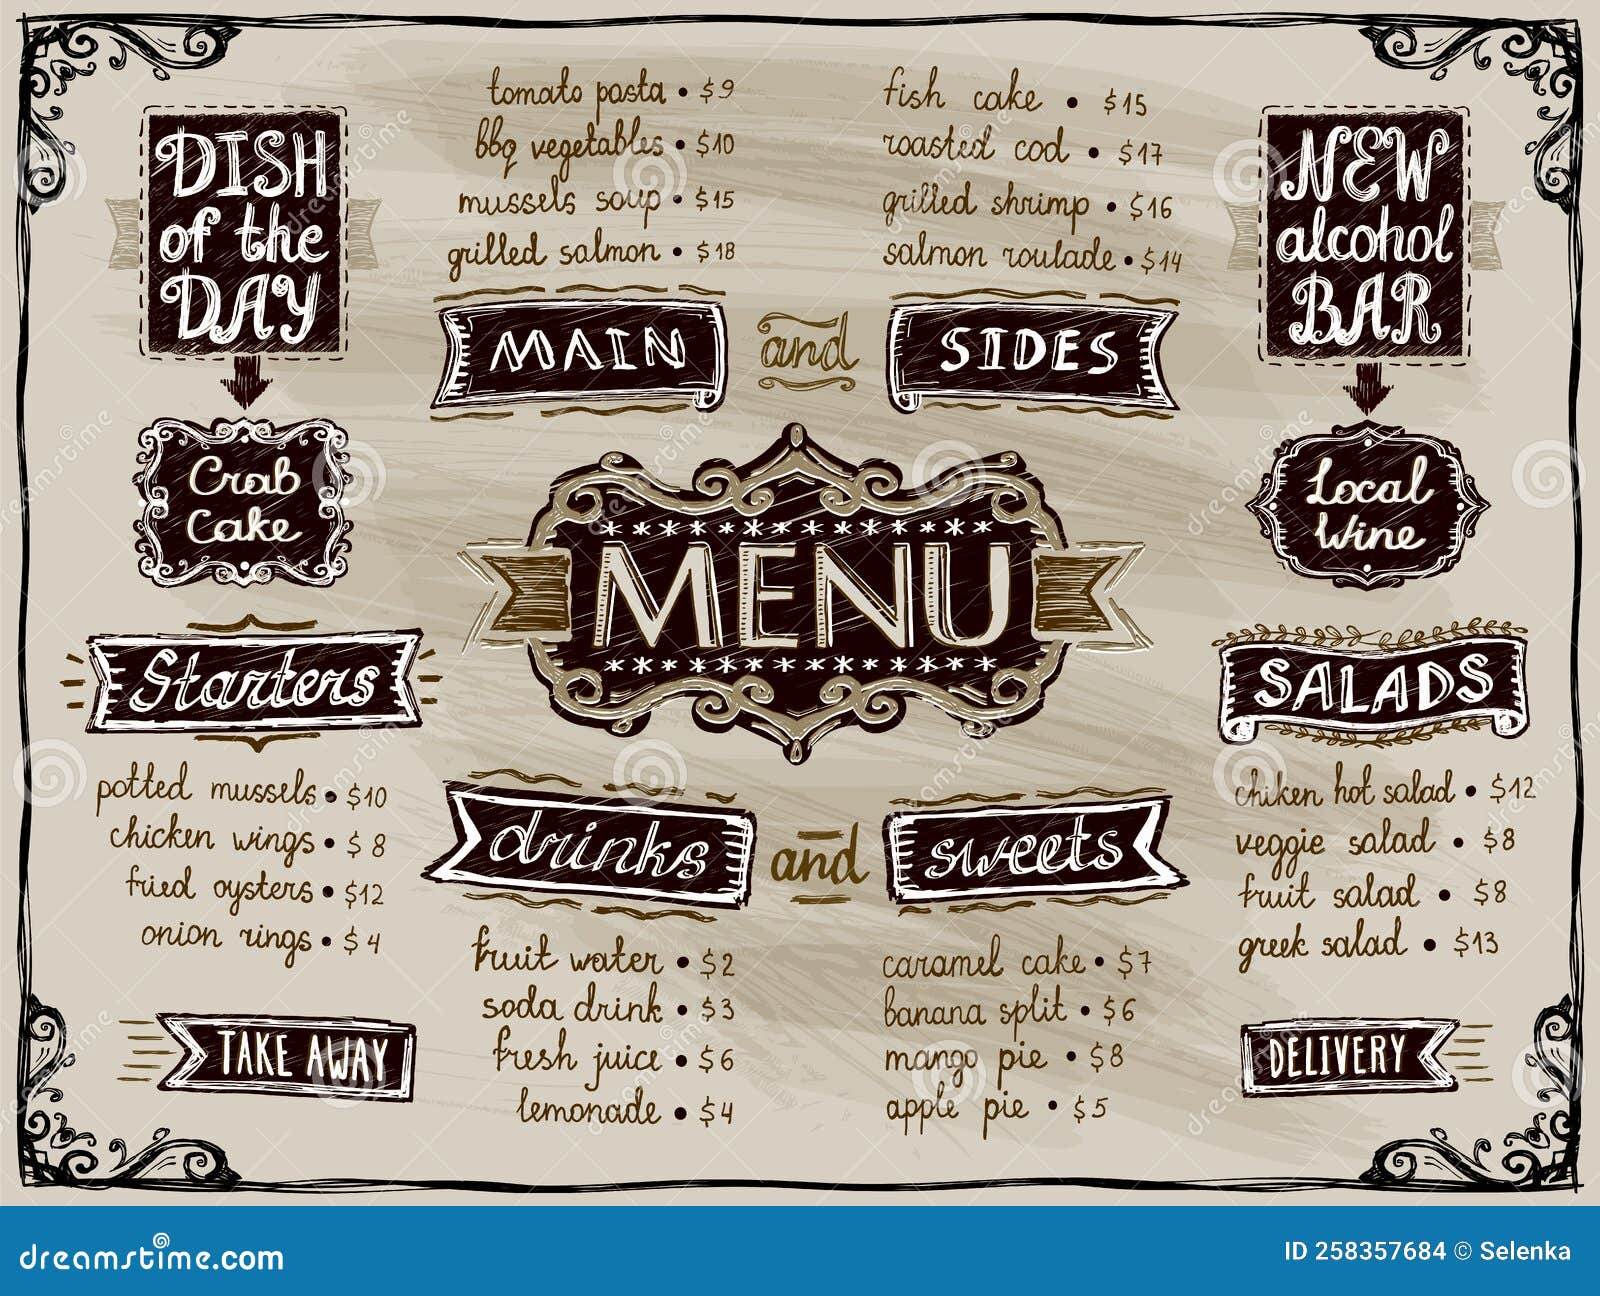 DISH
of the
DAY
Crab
Cake
tomato pasta • $9
bbq vegetables • $10
mussels soup • $15
grilled salmon • $18
MAIN
and
fish cake • $15
roasted cod • $17
grilled shrimp • $16
salmon roulade • $14
SIDES
NEW
alcohol
BAR
Local
Wine
* * * * * * * * * * * * * *
MENU
* * * * * * * * * * * * * *
Starters
potted mussels • $10
chicken wings • $8
fried oysters • $12
onion rings • $4
TAKE AWAY
drinks
and
fruit water • $2
soda drink • $3
fresh juice • $6
lemonade • $4
sweets
caramel cake • $7
banana split • $6
mango pie • $8
apple pie • $5
SALADS
chiken hot salad • $12
veggie salad • $8
fruit salad • $8
greek salad • $13
DELIVERY
dreamstime.com
ID 258357684 © Selenka